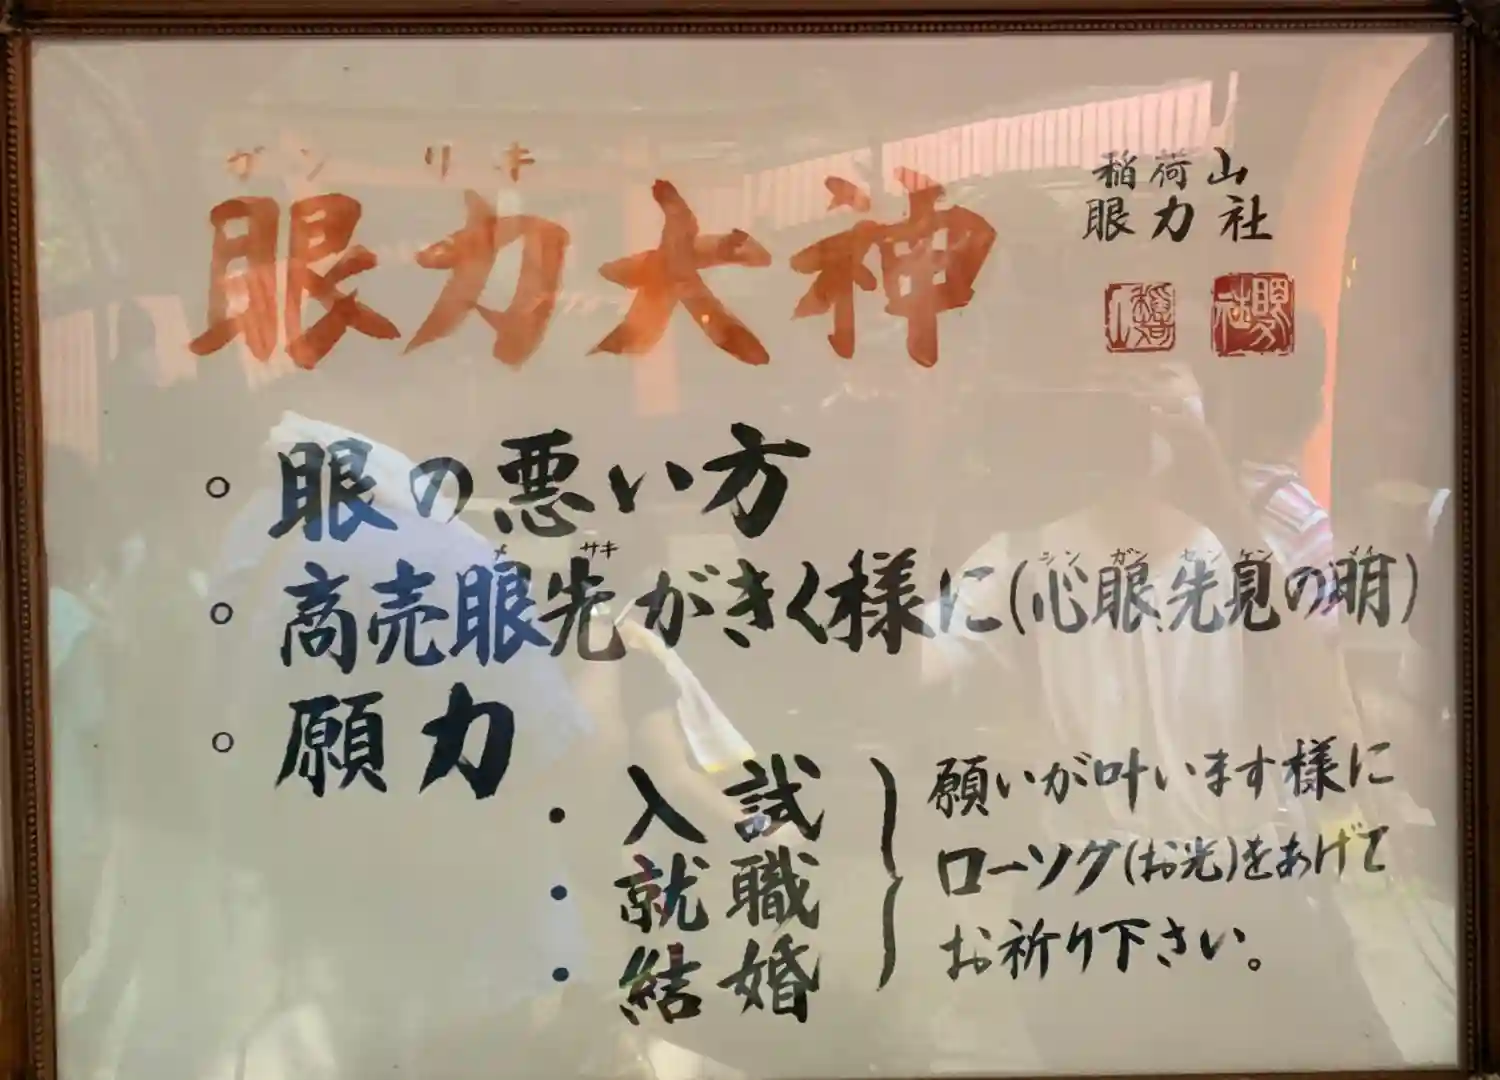 ガンリキ
眼力大神
稲荷山
眼力社
。眼の悪い方
メ サキ
。商売眼先がきく様に(心眼、先見の明)
シン ガン セン ケン メイ
。願力
・入試
・就職
・結婚
願いが叶います様に
ローソク(お光)をあげて
お祈り下さい。